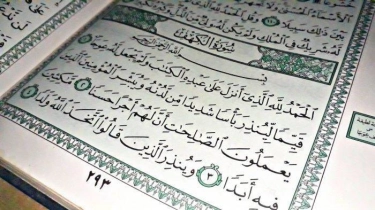 بَيْنَ ذَٰلِكَ سَبِيلًا
شَرِيكٌ فِي ٱلْمُلْكِ وَلَمْ يَكُن لَّهُۥ وَلِيٌّ مِّنَ ٱلذُّلِّ
سُورَةُ الْكَهْفِ
بِسْمِ ٱللَّهِ ٱلرَّحْمَٰنِ ٱلرَّحِيمِ
ٱلْحَمْدُ لِلَّهِ ٱلَّذِيٓ أَنزَلَ عَلَىٰ عَبْدِهِ ٱلْكِتَٰبَ وَلَمْ يَجْعَل لَّهُۥ عِوَجَا ۜ ١
قَيِّمًا لِّيُنذِرَ بَأْسًا شَدِيدًا مِّن لَّدُنْهُ وَيُبَشِّرَ ٱلْمُؤْمِنِينَ ٱلَّذِينَ
يَعْمَلُونَ ٱلصَّٰلِحَٰتِ أَنَّ لَهُمْ أَجْرًا حَسَنًا ٢ مَّٰكِثِينَ
فِيهِ أَبَدًا ٣ وَيُنذِرَ ٱلَّذِينَ قَالُوا۟ ٱتَّخَذَ ٱللَّهُ وَلَدًا ٤
٢٩٣